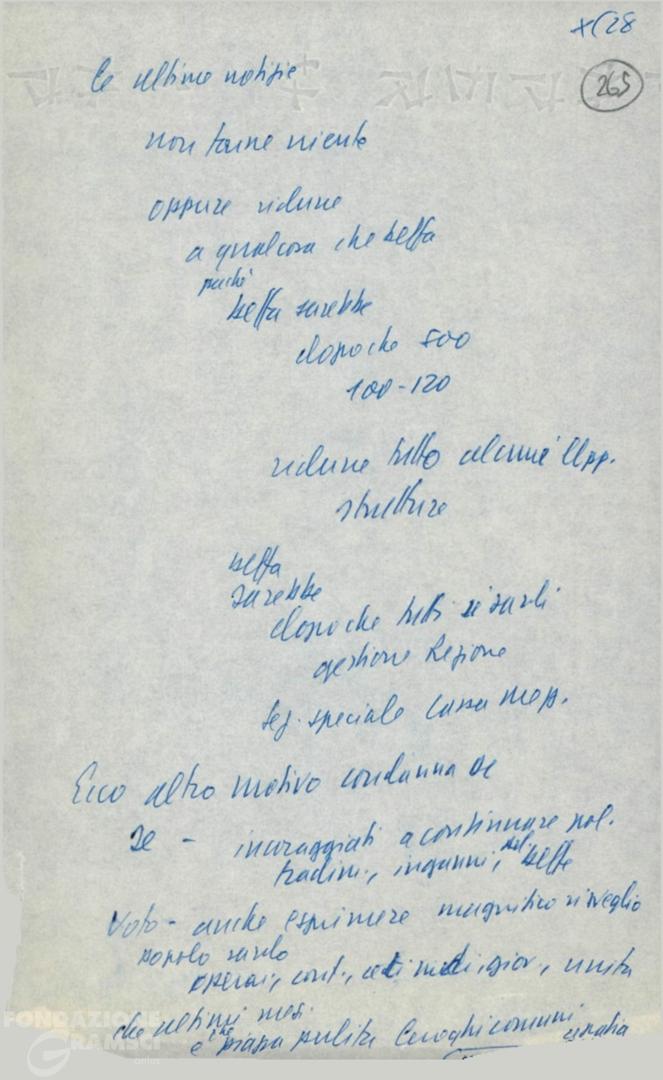 XI/28
265
Le ultime notizie
non farne niente
oppure ridurre
a qualcosa che beffa
perché
beffa sarebbe
dopo che 500
100-120
ridurre tutto alcune Opp.
strutture
beffa
sarebbe
dopo che tutti i sardi
gestione Regione
Seg. speciale Cassa Mezz.
Ecco altro motivo condanna DC
Se - incoraggiati a continuare pol.
tradim., inganni, del. beffe
Voto - anche esprimere magnifico risveglio
popolo sardo
operai, cont., ceti medi, giov., unità
che ultimi mesi
e che piazza pulita luoghi comuni
FONDAZIONE
GRAMSCI